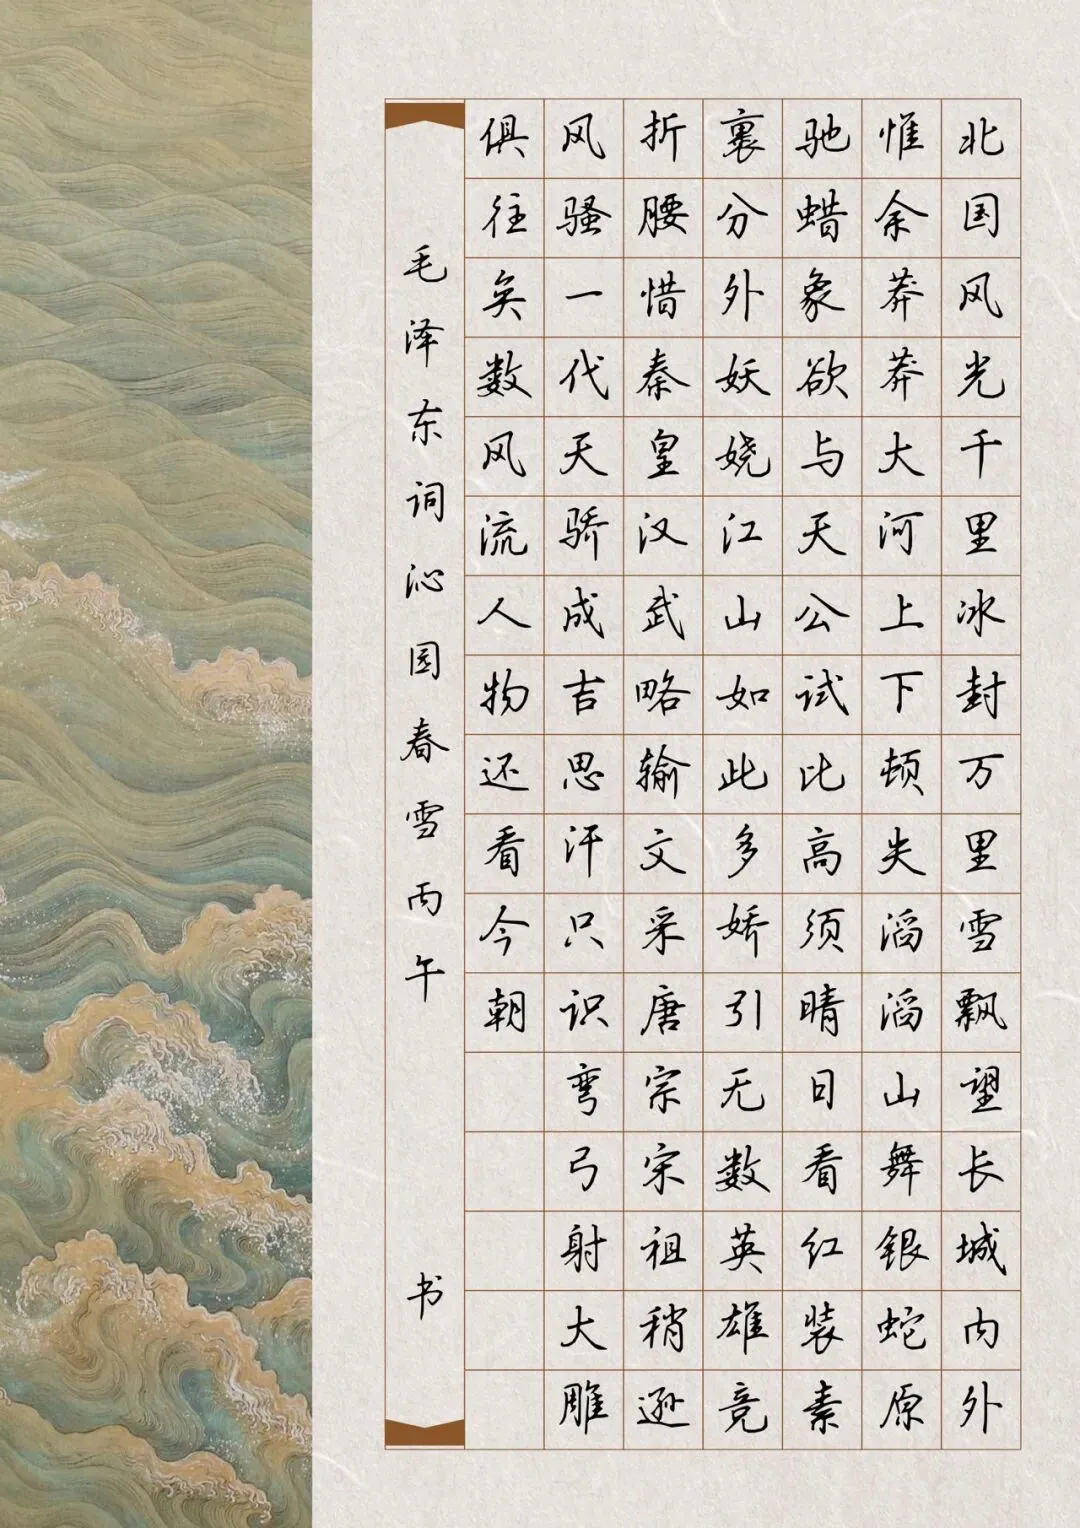 北国风光千里冰封万里雪飘望长城内外
惟余莽莽大河上下顿失滔滔山舞银蛇原
驰蜡象欲与天公试比高须晴日看红装素
裹分外妖娆江山如此多娇引无数英雄竞
折腰惜秦皇汉武略输文采唐宗宋祖稍逊
风骚一代天骄成吉思汗只识弯弓射大雕
俱往矣数风流人物还看今朝
毛泽东词沁园春雪丙午 书